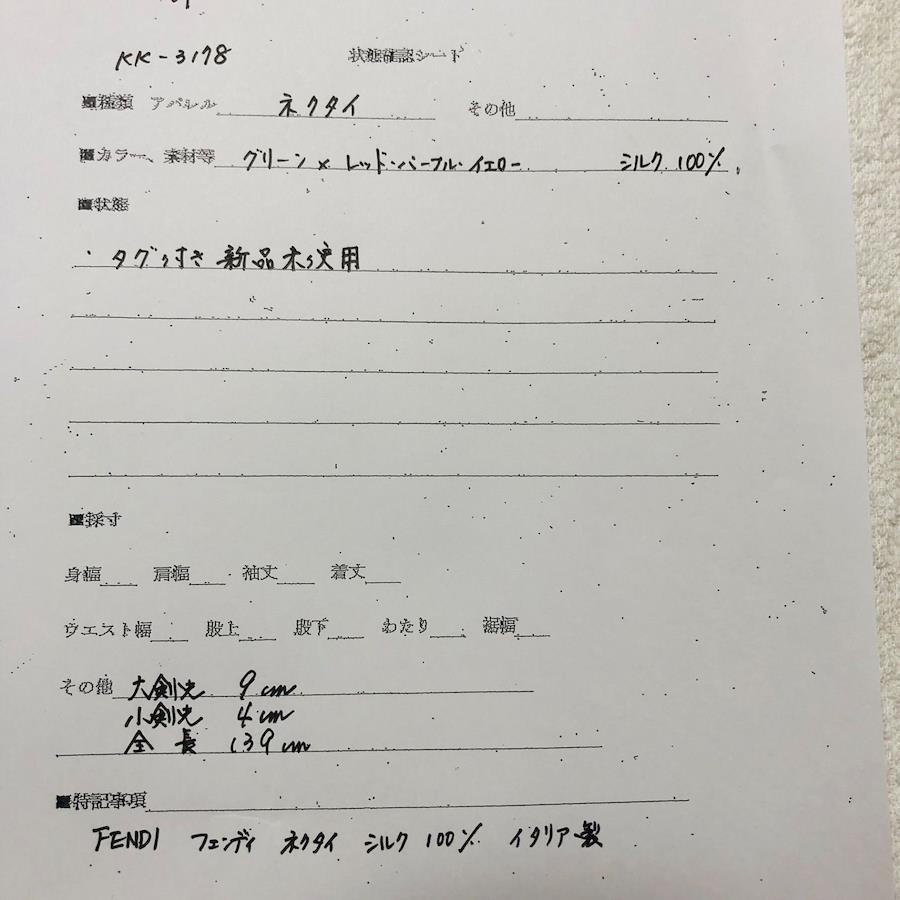 KK-3178 状態確認シート
■種類 アパレル ネクタイ その他
■カラー、素材等 グリーン×レッド・パープル・イエロー シルク 100%
■状態
・タグ付き 新品未使用
■採寸
身幅 肩幅 袖丈 着丈
ウエスト幅 股上 股下 わたり 裾幅
その他 大剣先 9cm
小剣先 4cm
全長 139cm
■特記事項
FENDI フェンディ ネクタイ シルク 100% イタリア製